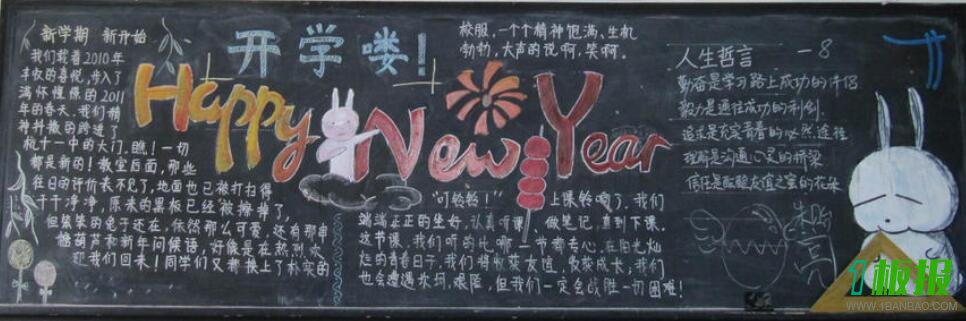 新学期 新开始
我们载着2010年
丰收的喜悦,步入了
满怀憧憬的2011
年的春天。我们精
神抖擞的跨进了
杭十一中的大门。瞧!一切
都是新的!教室后面,那些
往日的评价表不见了,地面也已被打扫得
干干净净,原来的黑板已经被擦掉了,
但笨笨的兔子还在,依然那么可爱,还有那串
糖葫芦和新年问候语,好像是在热烈欢
迎我们回来!同学们又都换上了朴实的
开学喽!
Happy New Year
校服,一个个精神饱满,生机
勃勃,大声的说啊,笑啊。
"叮铃铃!" 上课铃响了,我们
端端正正的坐好,认真听课,做笔记,直到下课。
这节课,我们听的比哪一节都专心,在阳光灿
烂的青春日子,我们将收获友谊,收获成长,我们
也会遭遇坎坷,艰险,但我们一定会战胜一切困难!
人生哲言 —8
勤奋是学习路上成功的伴侣
毅力是通往成功的利剑
追求是充实青春的必然途径
理解是沟通心灵的桥梁
信任是酝酿友谊之蜜的花朵
1板报
WWW.1BANBAO.COM